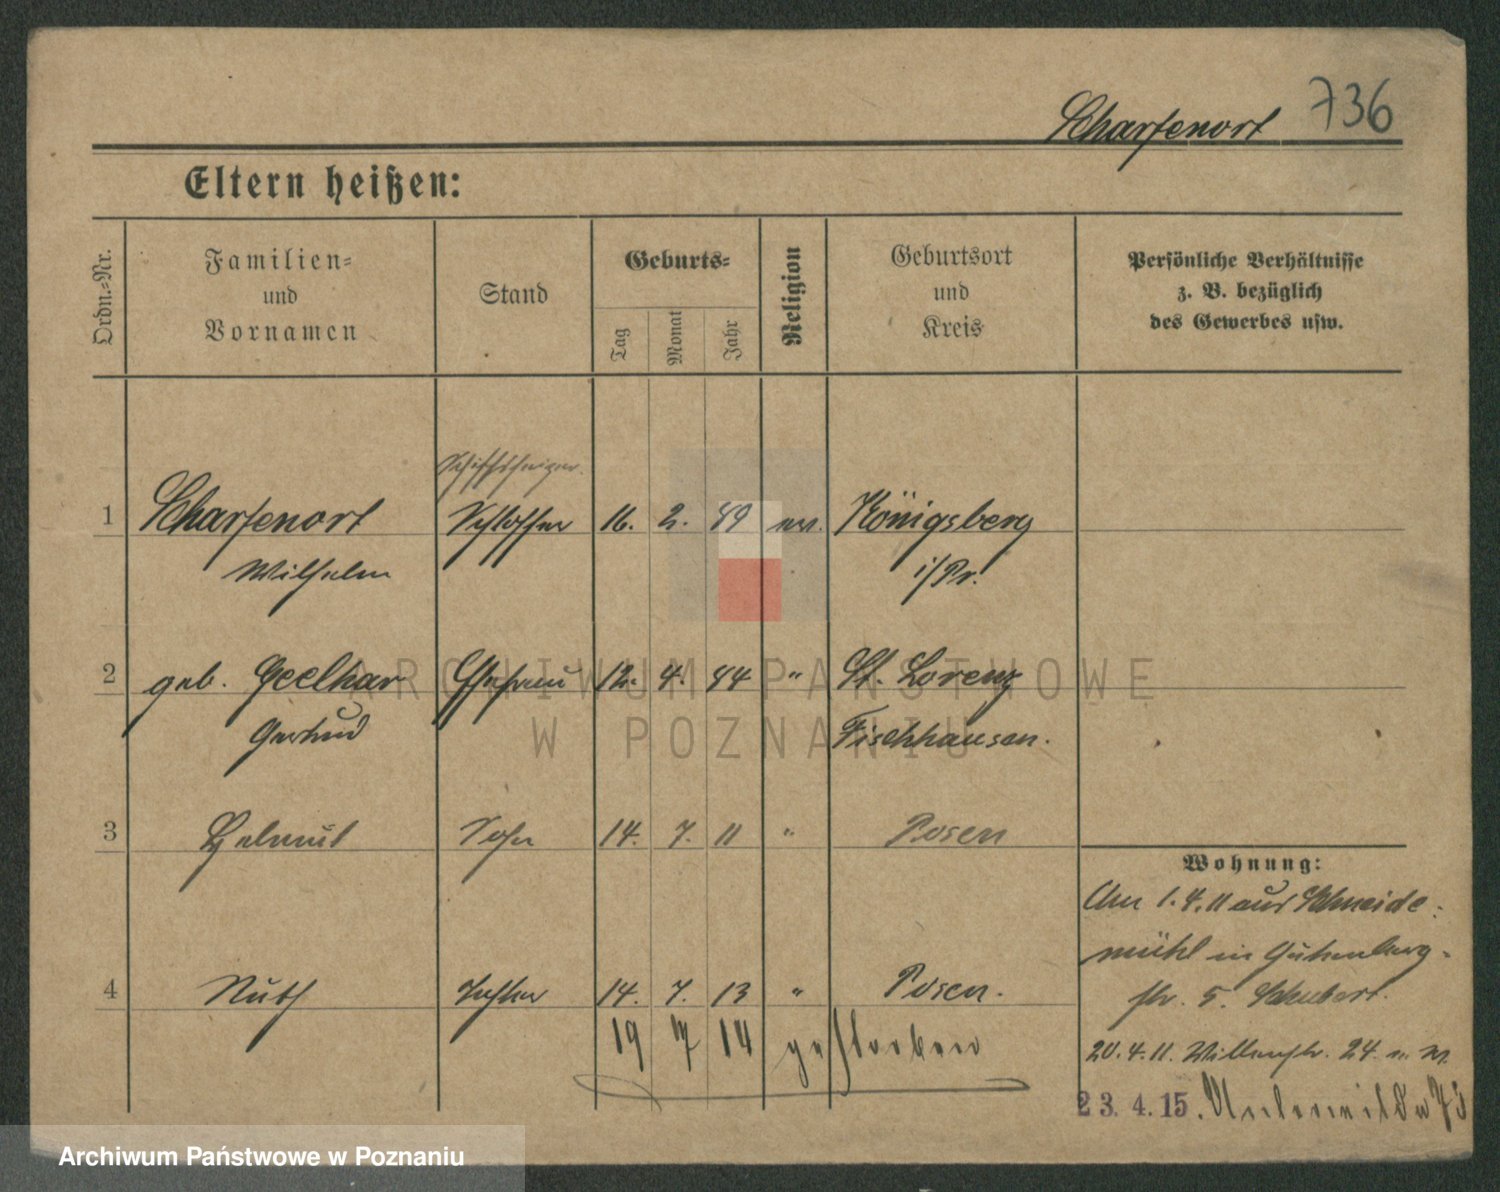 Scharfenort 736
Eltern heißen:
Ordn.-Nr.
Familien-
und
Vornamen
Stand
Geburts-
Tag
Monat
Jahr
Religion
Geburtsort
und
Kreis
Persönliche Verhältnisse
z. B. bezüglich
des Gewerbes usw.
Schiffsheizer
1 Scharfenort Schlosser 16. 2. 89 Königsberg
Wilhelm i/Pr.
2 geb. Geelhar Ehefrau 12. 4. 84 " St. Lorenz
Gertrud Fischhausen.
3 Helmut Sohn 14. 7. 11 " Posen
4 Ruth Tochter 14. 7. 13 " Posen.
19 7 14 gestorben
Wohnung:
Am 1.4.11 aus Schneide-
mühl in Gutenberg-
str. 5. Schubert.
20.4.11. 24
23.4.15. Unterwilda 73
ARCHIWUM PAŃSTWOWE
W POZNANIU
Archiwum Państwowe w Poznaniu